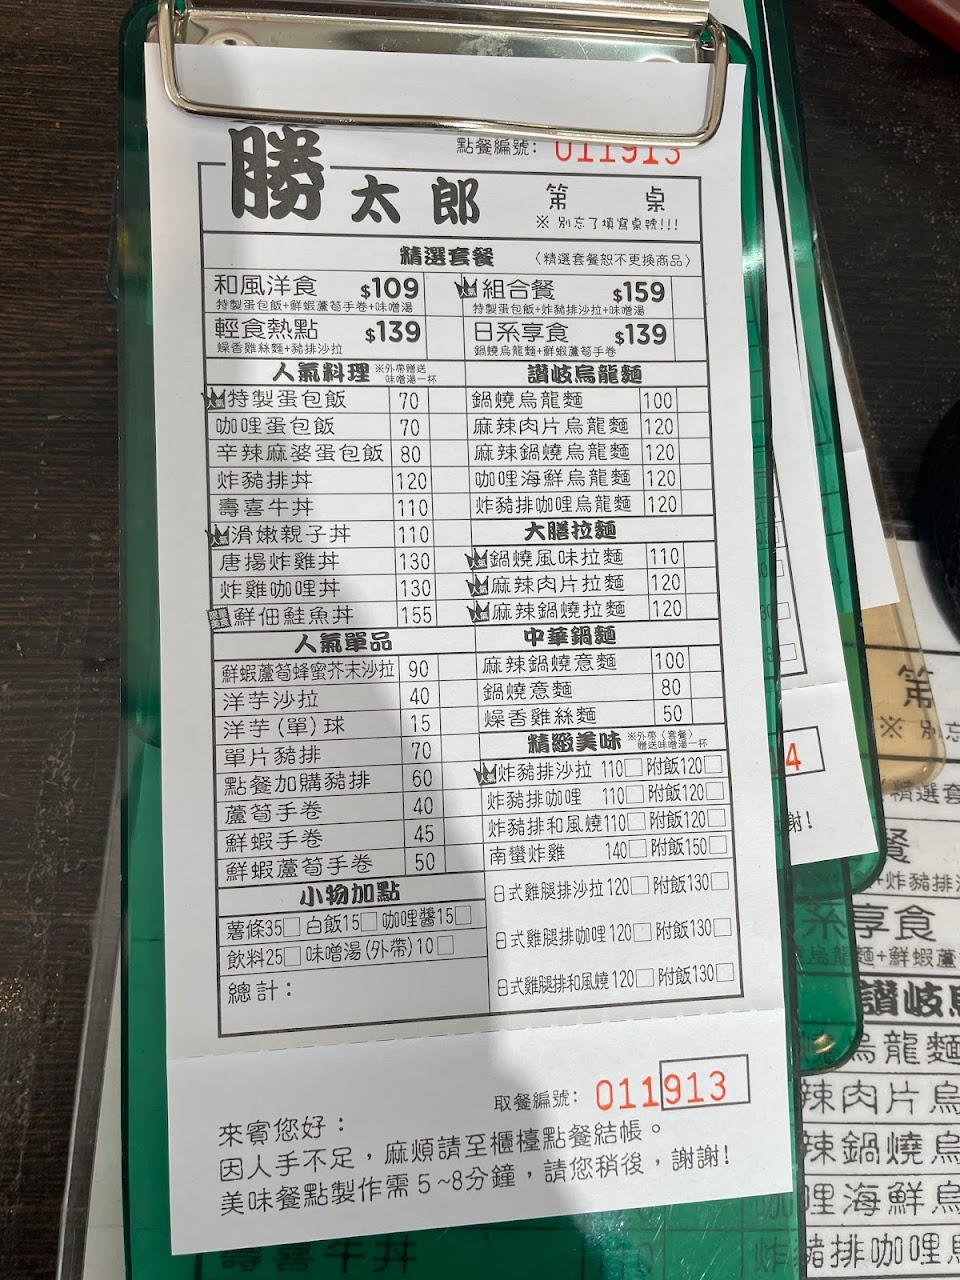 點餐編號: 011913
勝太郎
第 桌
※ 別忘了填寫桌號!!!
精選套餐 〈精選套餐恕不更換商品〉
和風洋食 $109
特製蛋包飯+鮮蝦蘆筍手卷+味噌湯
人氣 組合餐 $159
特製蛋包飯+炸豬排沙拉+味噌湯
輕食熱點 $139
燥香雞絲麵+豬排沙拉
日系享食 $139
鍋燒烏龍麵+鮮蝦蘆筍手卷
人氣料理 ※外帶贈送味噌湯一杯
人氣 特製蛋包飯 70
咖哩蛋包飯 70
辛辣麻婆蛋包飯 80
炸豬排丼 120
壽喜牛丼 110
人氣 滑嫩親子丼 110
唐揚炸雞丼 130
炸雞咖哩丼 130
鮮佃鮭魚丼 155
人氣單品
鮮蝦蘆筍蜂蜜芥末沙拉 90
洋芋沙拉 40
洋芋(單)球 15
單片豬排 70
點餐加購豬排 60
蘆筍手卷 40
鮮蝦手卷 45
鮮蝦蘆筍手卷 50
小物加點
薯條35□ 白飯15□ 咖哩醬15□
飲料25□ 味噌湯(外帶)10□
總計：
讚岐烏龍麵
鍋燒烏龍麵 100
麻辣肉片烏龍麵 120
麻辣鍋燒烏龍麵 120
咖哩海鮮烏龍麵 120
炸豬排咖哩烏龍麵 120
大膳拉麵
人氣 鍋燒風味拉麵 110
人氣 麻辣肉片拉麵 120
人氣 麻辣鍋燒拉麵 120
中華鍋麵
麻辣鍋燒意麵 100
鍋燒意麵 80
燥香雞絲麵 50
精緻美味 ※外帶〈套餐〉贈送味噌湯一杯
人氣 炸豬排沙拉 110□ 附飯120□
炸豬排咖哩 110□ 附飯120□
炸豬排和風燒110□ 附飯120□
南蠻炸雞 140□ 附飯150□
日式雞腿排沙拉120□ 附飯130□
日式雞腿排咖哩120□ 附飯130□
日式雞腿排和風燒120□ 附飯130□
取餐編號: 011913
來賓您好：
因人手不足，麻煩請至櫃檯點餐結帳。
美味餐點製作需5~8分鐘，請您稍後，謝謝!
4
謝!
第
※ 別忘
精選套
餐
+炸豬排
系享食
烏龍麵+鮮蝦蘆
讚岐
烏龍麵
辣肉片烏
辣鍋燒烏
哩海鮮烏
炸豬排咖哩
壽喜牛丼